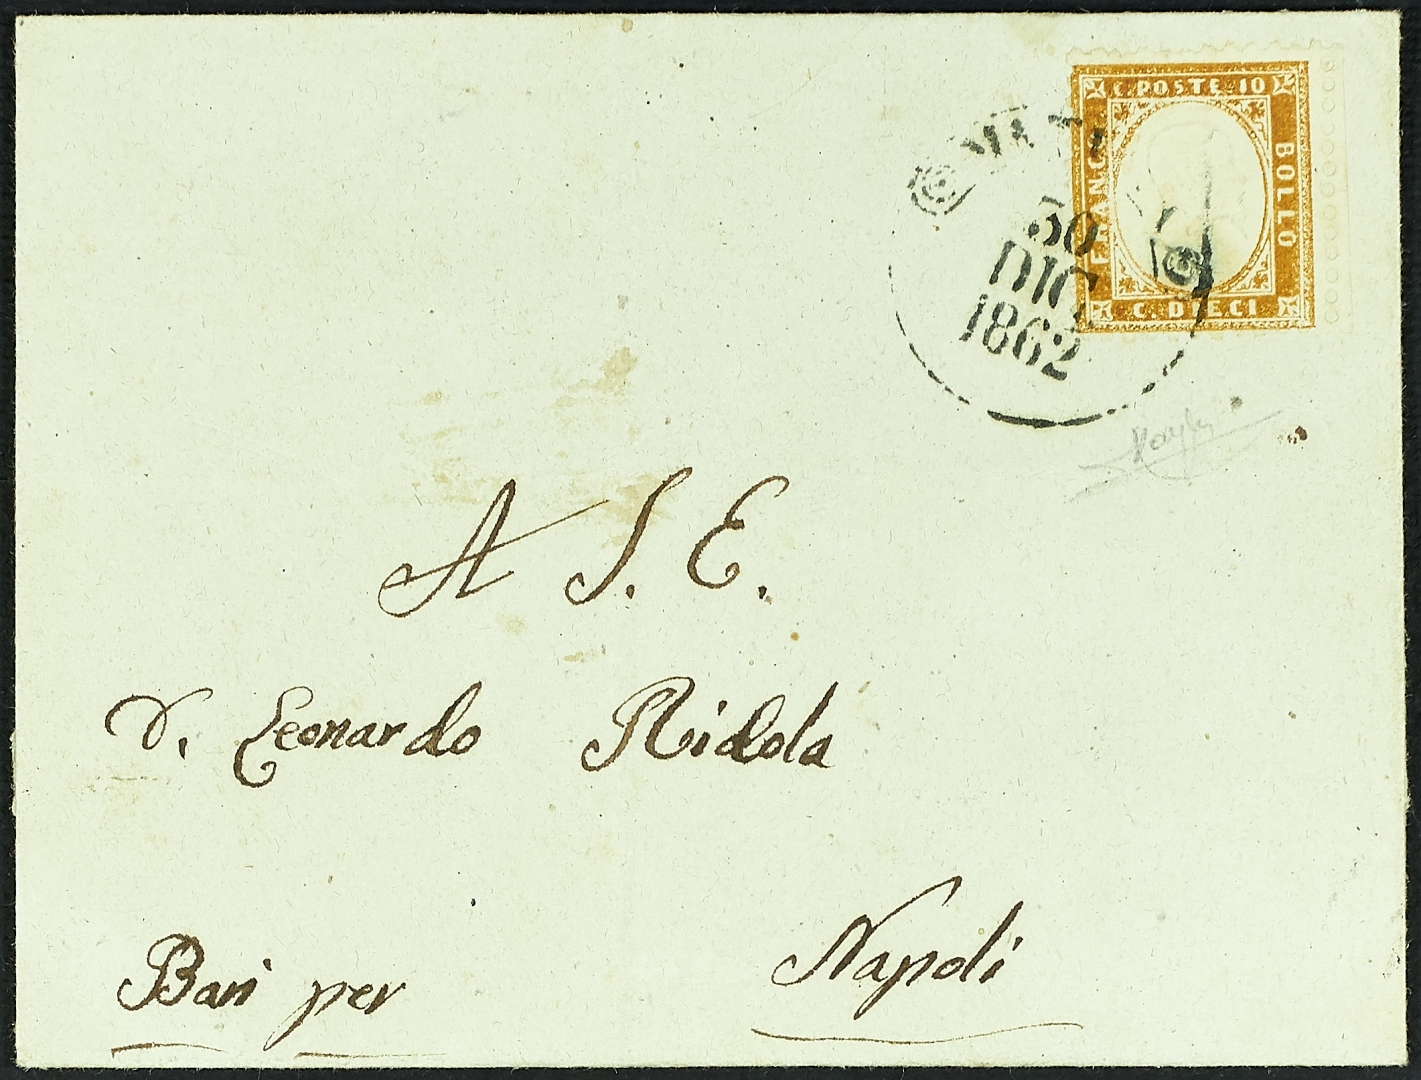 C. POSTE 10
FRANCO
BOLLO
C. DIECI
30
DIC
1862
A S. E.
D. Leonardo Ridola
Napoli
Bari per